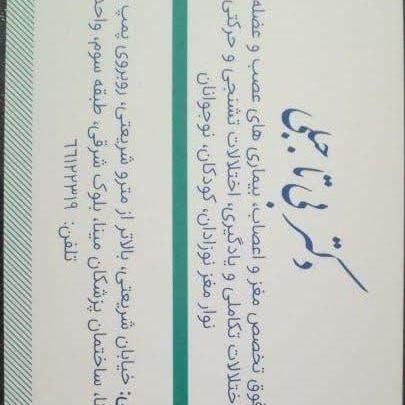 دکتر
فوق تخصص مغز و اعصاب، بیماری های عصب و عضله
اختلالات تکاملی و یادگیری، اختلالات تشنجی و حرکتی
نوار مغز نوزادان، کودکان، نوجوانان
خیابان شریعتی، بالاتر از مترو شریعتی، روبروی پمپ
ساختمان پزشکان مینا، بلوک شرقی، طبقه سوم، واحد
تلفن: ٦٦١٢٢٣١٩